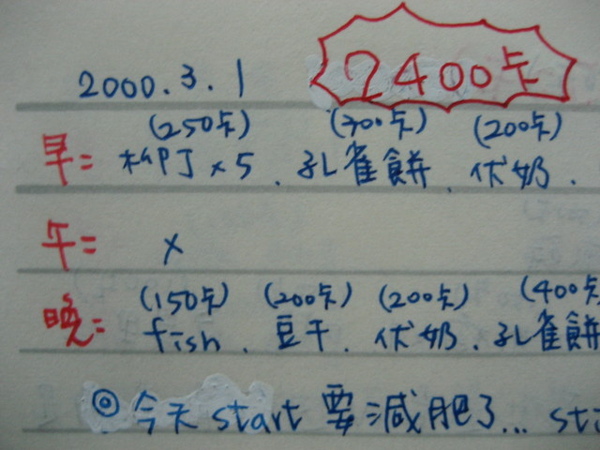 2000.3.1 2400卡
(250卡) (700卡) (200卡)
早= 柳丁×5、孔雀餅、伏奶、
午= ×
(150卡) (200卡) (200卡) (400卡
晚= fish、豆干、伏奶、孔雀餅
◎今天 start 要減肥了...